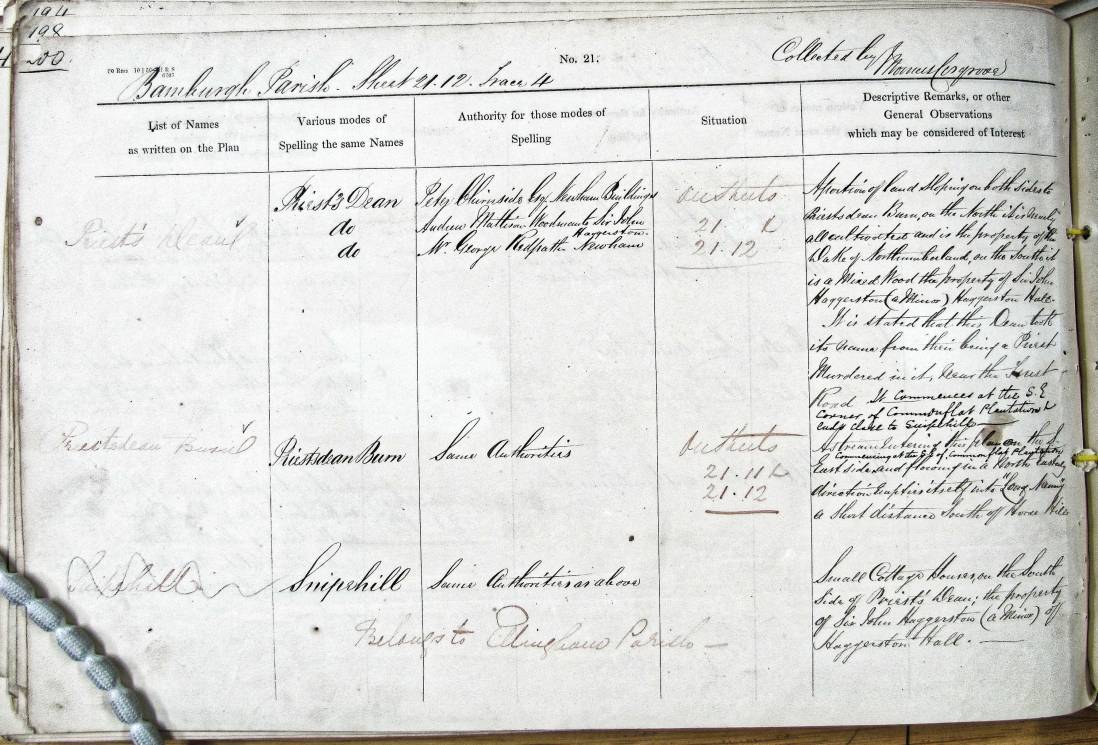 194
198
200.
No. 21.
Collected by Thomas Cosgrove
Bamburgh Parish. Sheet 21.12. Trace 4
List of Names
as written on the Plan
Various modes of
Spelling the same Names
Authority for those modes of
Spelling
Situation
Descriptive Remarks, or other
General Observations
which may be considered of Interest
Priest's Dean
Priest's Dean
do
do
Chirnside Esq. Newham Buildings
Andrew Mattison Woodman to Sir John
Haggerston
Mr. George Redpath Newham
21
21.12
A portion of land Sloping on both sides to
Priestsdean Burn, on the North it is
all cultivated and is the property of the
Duke of Northumberland, on the South it
is a Mixed Wood the property of Sir John
Haggerston (a Minor) Haggerston Hall.
It is stated that this Dean took
its name from their being a Priest
Murdered in it, near the
Road It commences at the S.E
corner of Commonflat Plantation &
ends close to Snipehill
Priestsdean Burn
Priestsdean Burn
Same Authorities
21.11
21.12
A stream entering this plan on the S.
Commencing at the S.E of Commonflat Plantation
East side and flowing in a North Easterly
direction empties itself into "Long Nanny"
a Short distance South of Horse Hill
Snipehill
Snipehill
Same Authorities as above
Small Cottage Houses, on the South
Side of Priest's Dean; the property
of Sir John Haggerston (a Minor) of
Haggerston Hall.
Belongs to Ellingham Parish